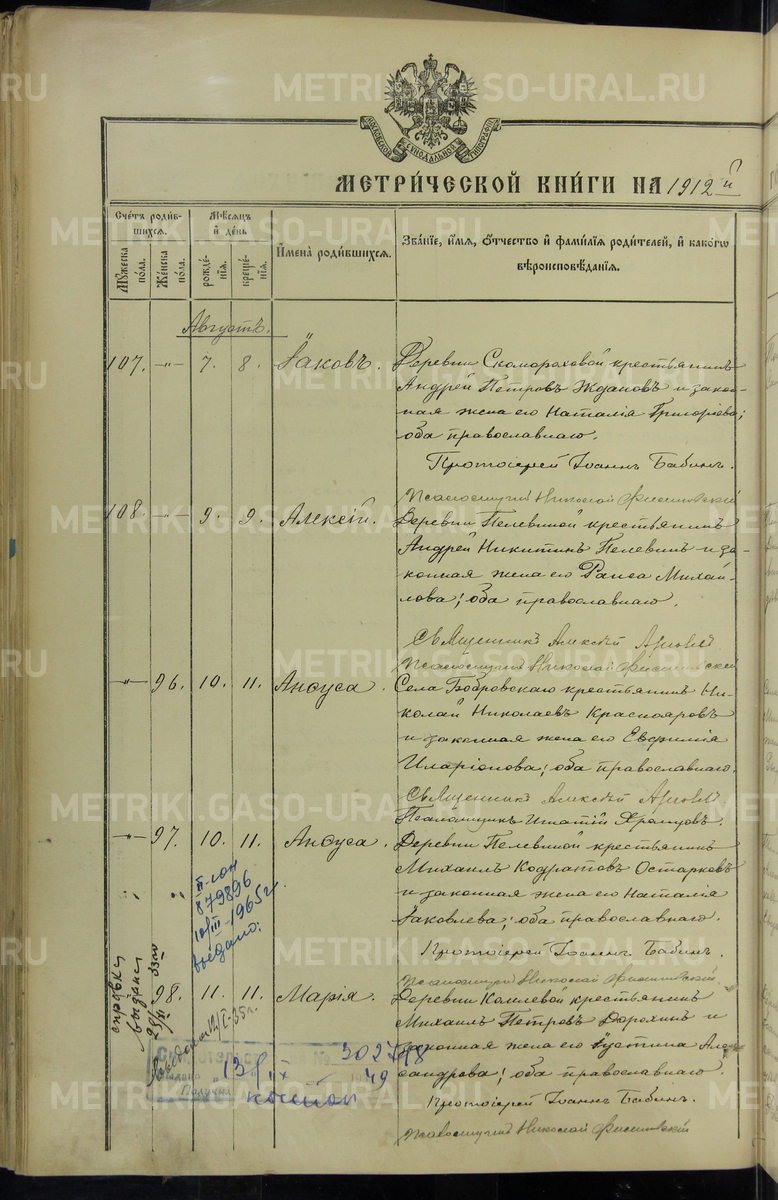 МОСКОВСКОЙ СѴНОДАЛЬНОЙ ТИПОГРАФІИ
МЕТРИЧЕСКОЙ КНИГИ НА 1912 й
Счетъ родившихся.
Мужеска пола.
Женска пола.
Мѣсяцъ и день
рожденія.
крещенія.
Имена родившихся.
Званіе, имя, отчество и фамилія родителей, и какого вѣроисповѣданія.
Августъ.
107. -"- 7. 8. Іаковъ.
Деревни Скомороховой крестьянинъ
Андрей Петровъ Ждановъ и закон-
ная жена его Наталія Григоріева;
оба православнаго.
Протоіерей Іоаннъ Бабинъ.
Псаломщикъ Николай
108. -"- 9. 9. Алексій.
Деревни Пелевиной крестьянинъ
Андрей Никитинъ Пелевинъ и за-
конная жена его Раиса Михаи-
лова; оба православнаго.
Священникъ Алексѣй
Псаломщикъ Николай
-"- 96. 10. 11. Анѳуса.
Села Бобровскаго крестьянинъ Ни-
колай Николаевъ Краснояровъ
и законная жена его Евфимія
Иларіонова; оба православнаго.
Священникъ Алексѣй
Псаломщикъ Игнатій Храмцовъ.
-"- 97. 10. 11. Анѳуса.
Деревни Пелевиной крестьянинъ
Михаилъ Кодратовъ Остарковъ
и законная жена его Наталія
Іаковлева; оба православнаго.
Протоіерей Іоаннъ Бабинъ.
Псаломщикъ Николай
879896
10/III 1965 г
выдано.
-"- 98. 11. 11. Марія.
Деревни Камлевой крестьянинъ
Михаилъ Петровъ Дорохинъ и
законная жена его Іустина Алек-
сандрова; оба православнаго.
Протоіерей Іоаннъ Бабинъ.
Псаломщикъ Николай
справка
выдана
302798
13/IX 49
METRIKI.GASO-URAL.RU